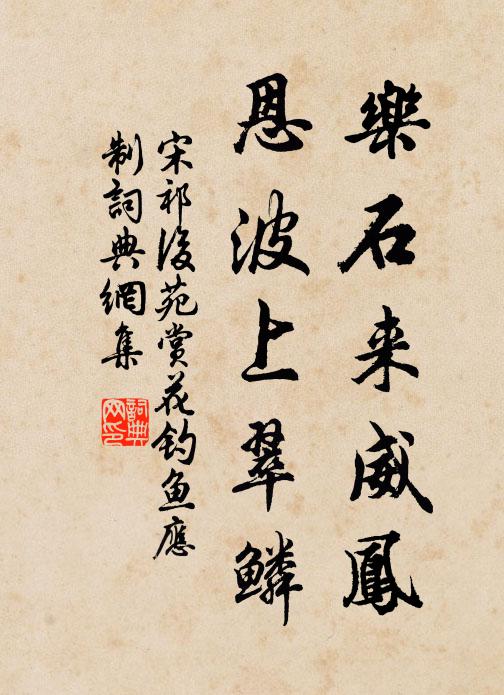 樂石来威鳳
恩波上翠鱗
宋祁後苑賞花釣魚應
制詞典網集
詞典
网印